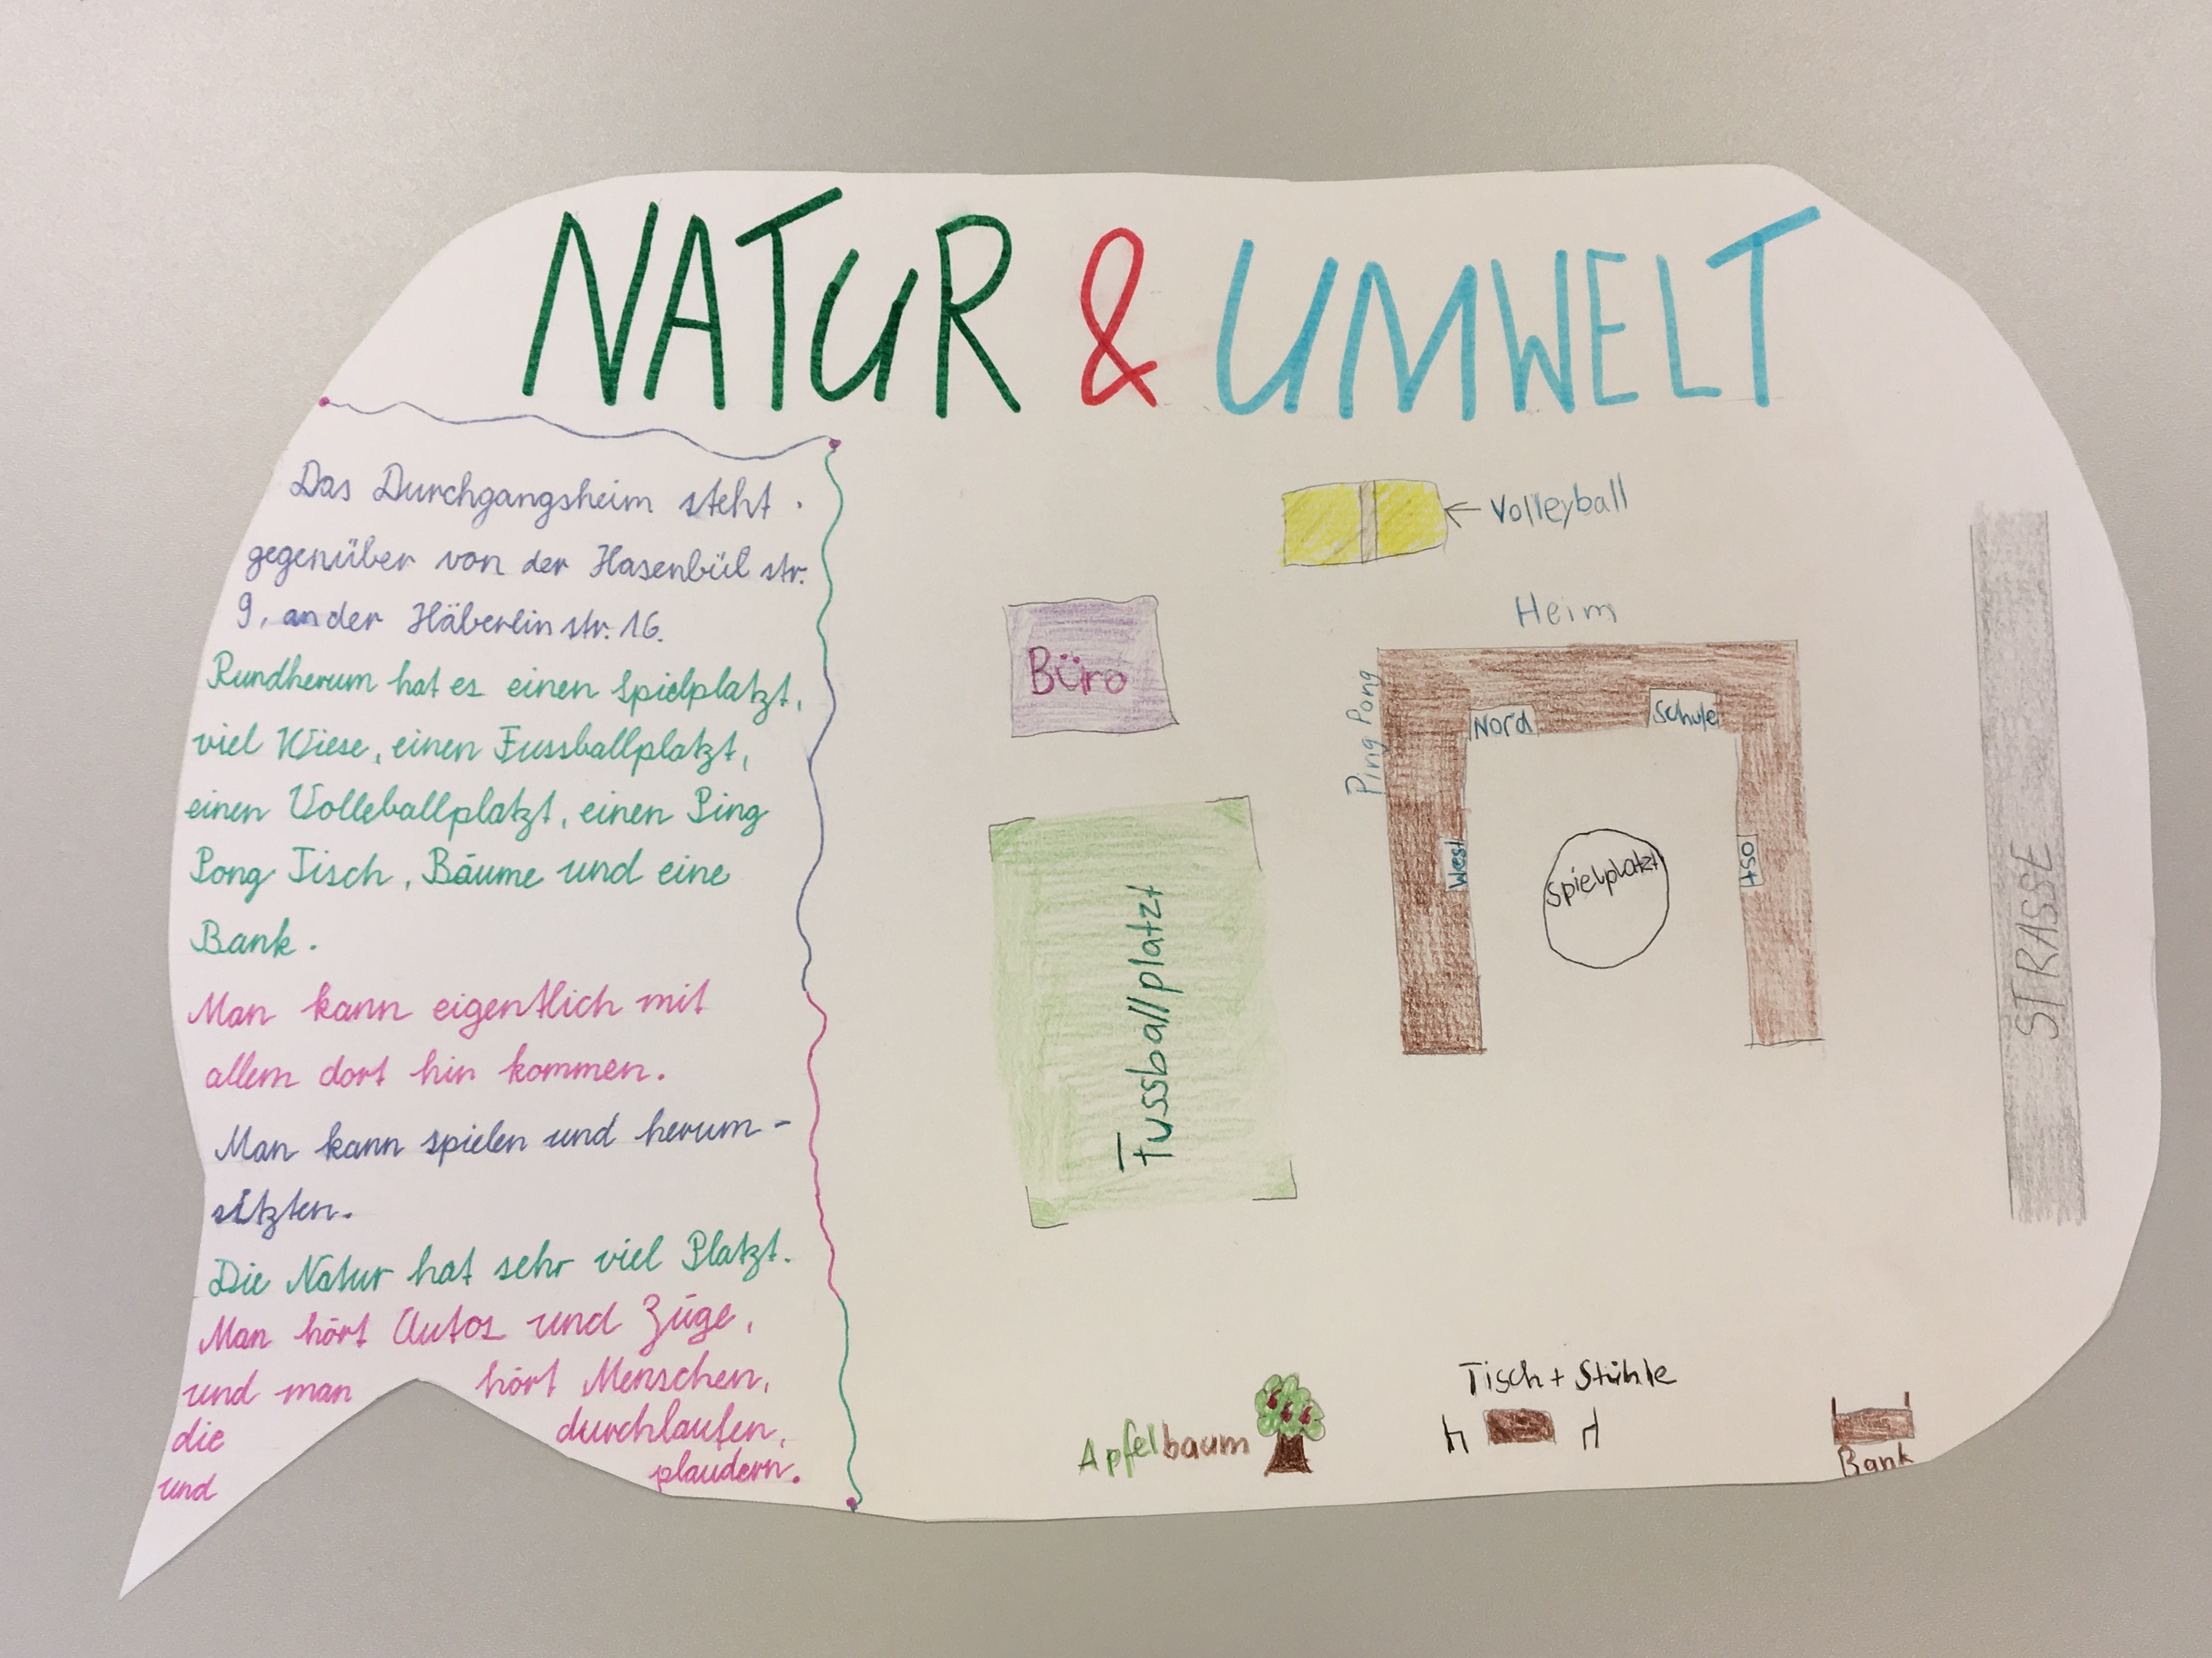 NATUR & UMWELT
Das Durchgangsheim steht
gegenüber von der Hasenbül str.
9, an der Häberlin str. 16.
Rundherum hat es einen Spielplatzt,
viel Wiese, einen Fussballplatzt,
einen Volleballplatzt, einen Ping
Pong Tisch, Bäume und eine
Bank.
Man kann eigentlich mit
allem dort hin kommen.
Man kann spielen und herum-
sitzten.
Die Natur hat sehr viel Platzt.
Man hört Autos und Züge,
und man hört Menschen,
die durchlaufen,
und plaudern.
Volleyball
Heim
Büro
Ping Pong
Nord
Schule
West
Spielplatzt
Ost
Fussballplatzt
STRASSE
Tisch + Stühle
Apfelbaum
Bank